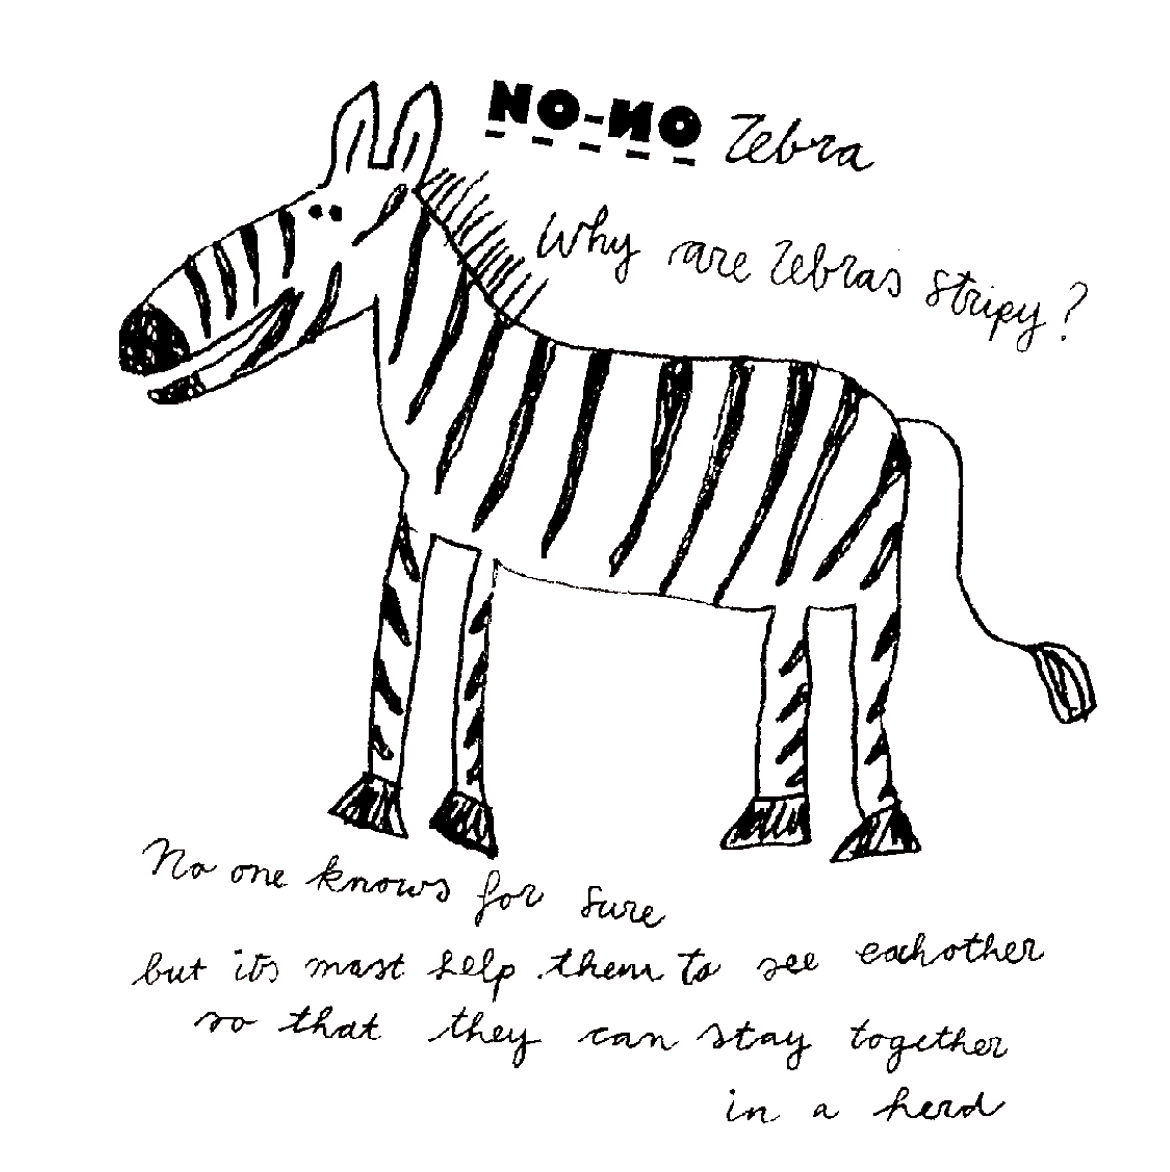 NO-NO Zebra
Why are Zebras stripy?
No one knows for sure
but its mast help them to see eachother
so that they can stay together
in a herd